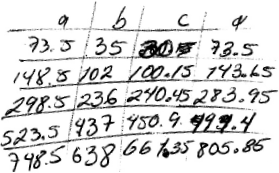 a b c d
73.5 35 73.5
148.5 102 100.15 143.65
298.5 236 240.45 283.95
523.5 437 450.9
748.5 638 661.35 805.85